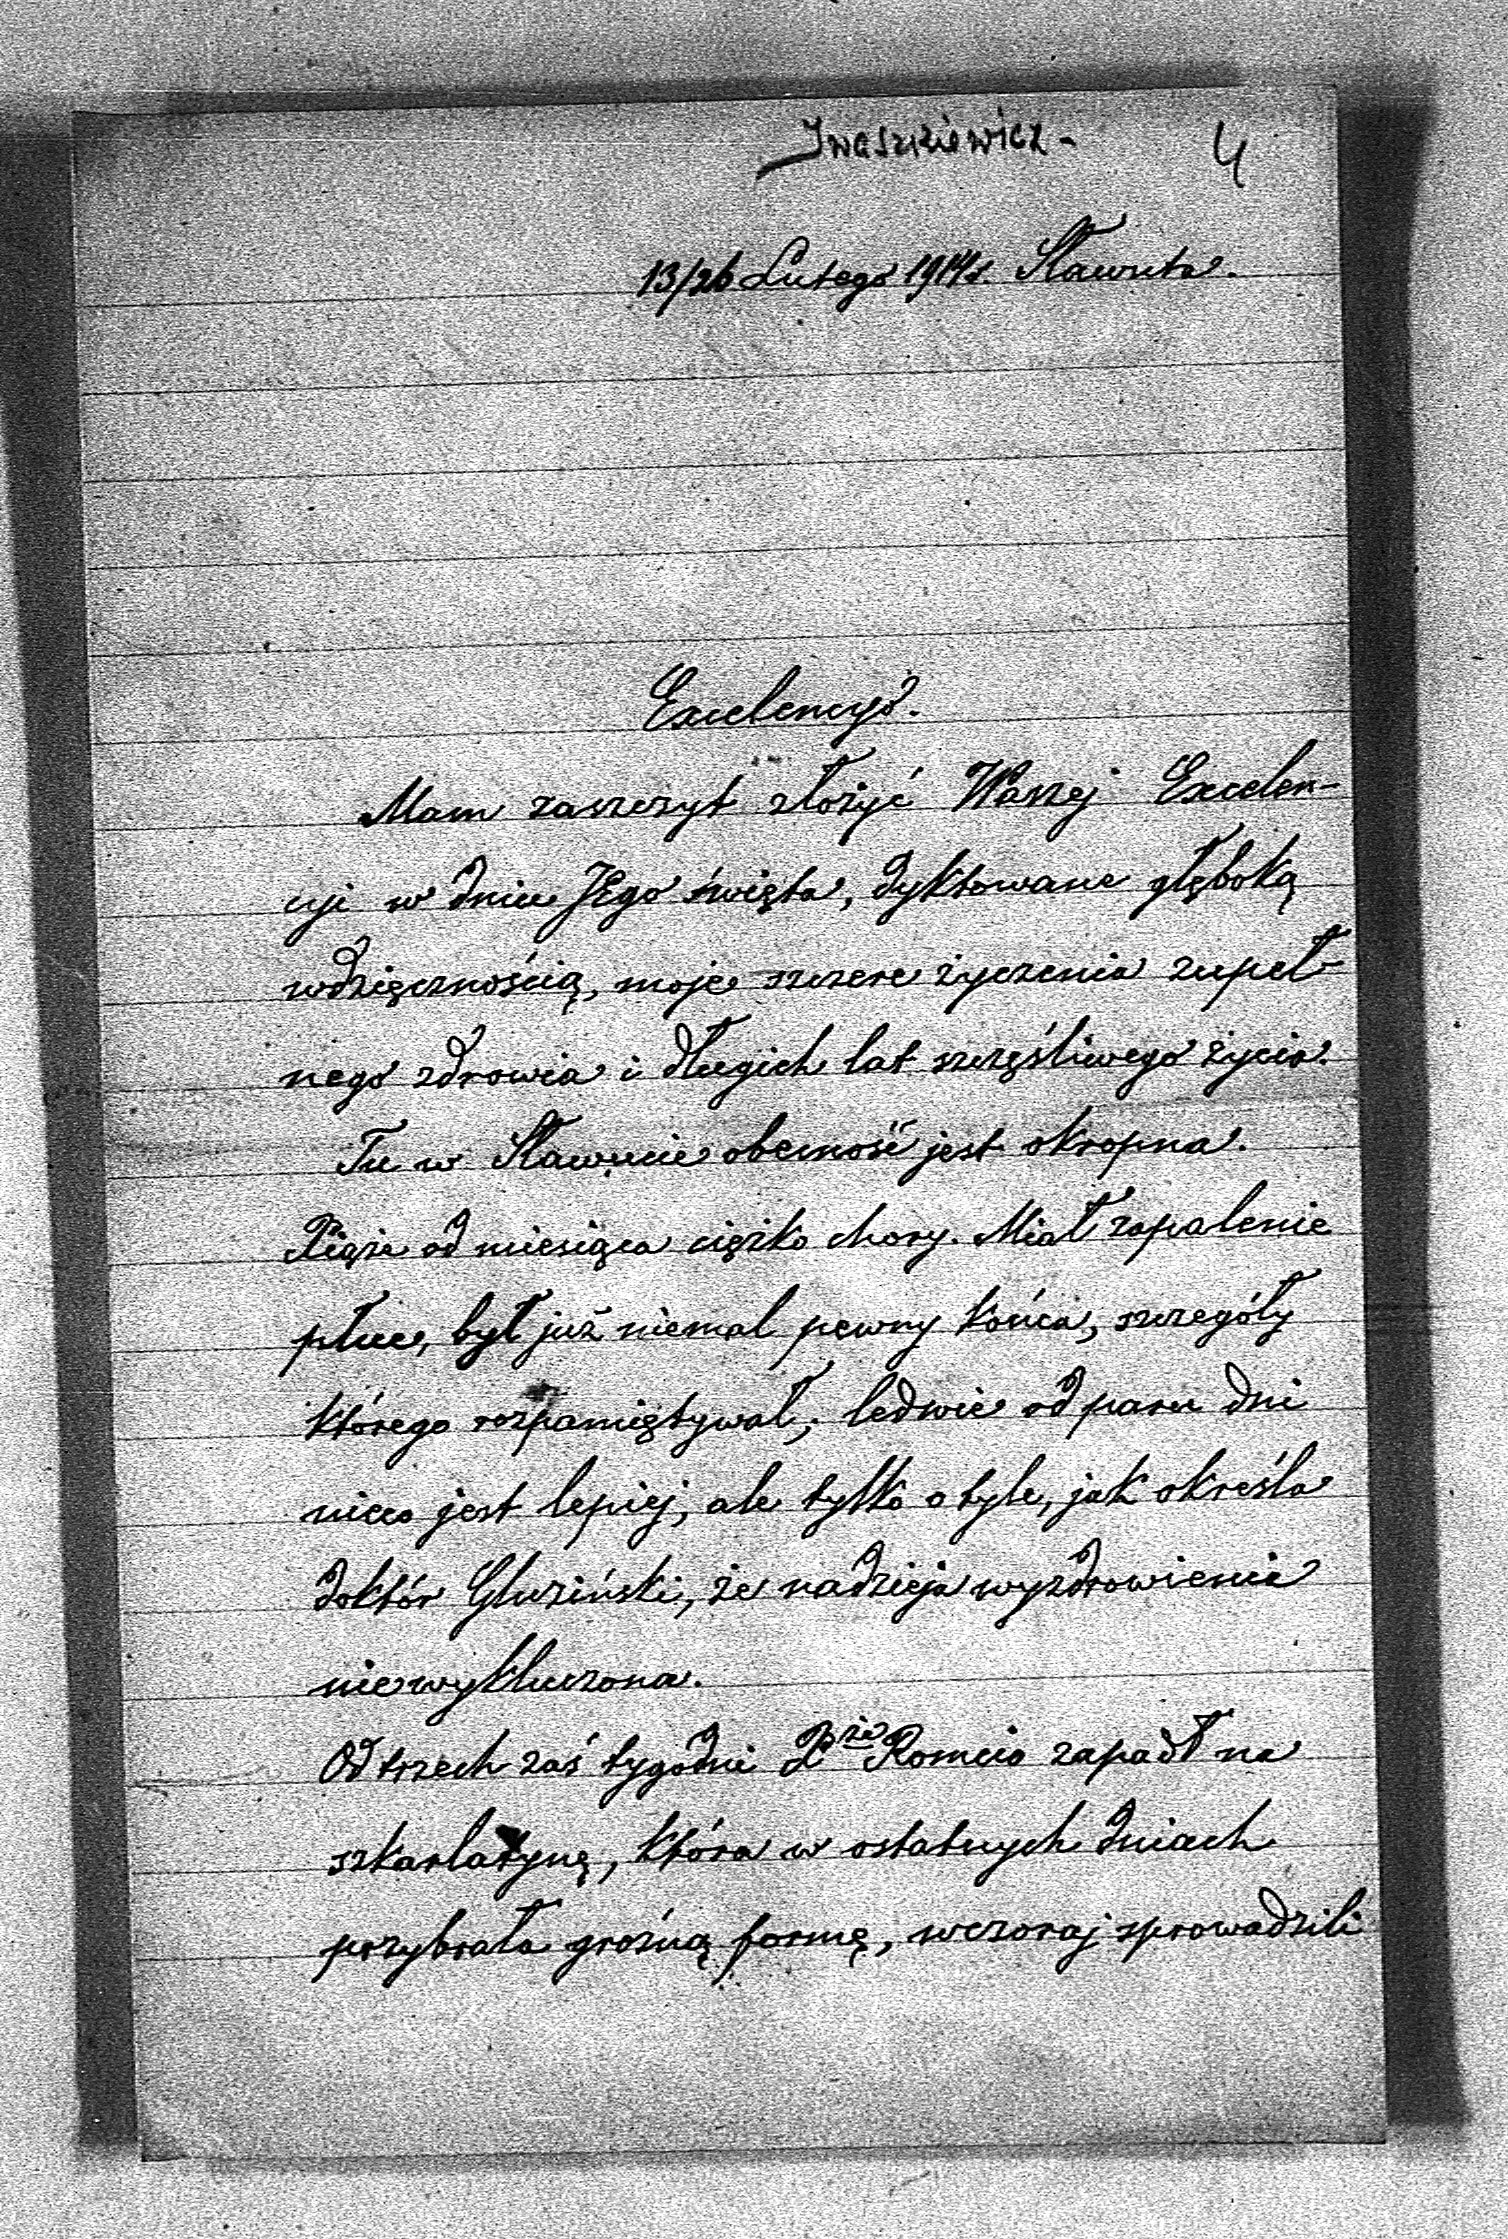 Iwaszkiewicz - 4
13/26 Lutego 1914 r. Sławuta.
Excelencyo.
Mam zaszczyt złożyć Waszej Excelen-
cyi w dniu JEgo święta, dyktowane głęboką
wdzięcznością, moje szczere życzenia zupeł-
nego zdrowia i długich lat szczęśliwego życia.
Tu w Sławucie obecność jest okropna.
Xiąże od miesiąca ciężko chory. Miał zapalenie
płuc, był już niemal pewny końca, szczegóły
którego rozpamiętywał, ledwie od paru dni
nieco jest lepiej, ale tylko o tyle, jak określa
doktór Gluziński, że nadzieja wyzdrowienia
niewykluczona.
Od trzech zaś tygodni X że Romcio zapadł na
szkarlatynę, która w ostatnych dniach
przybrała groźną formę, wczoraj sprowadzili